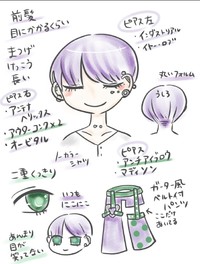 前髪
目にかかるくらい
まつげ
けっこう
長い
ピアス右
・アンテナ
ヘリックス
・アウターコンク×2
・オービタル
ピアス左
・インダストリアル
・イヤーロブ
丸いフォルム
うしろ
ノーカラー
シャツ
二重くっきり
ピアス
・アンチアイブロウ
・マディソン
いつも
にこにこ
あんまり
目が
笑ってない
ガーター風
ベルト付き
パンツ
ここだけ
あいてる